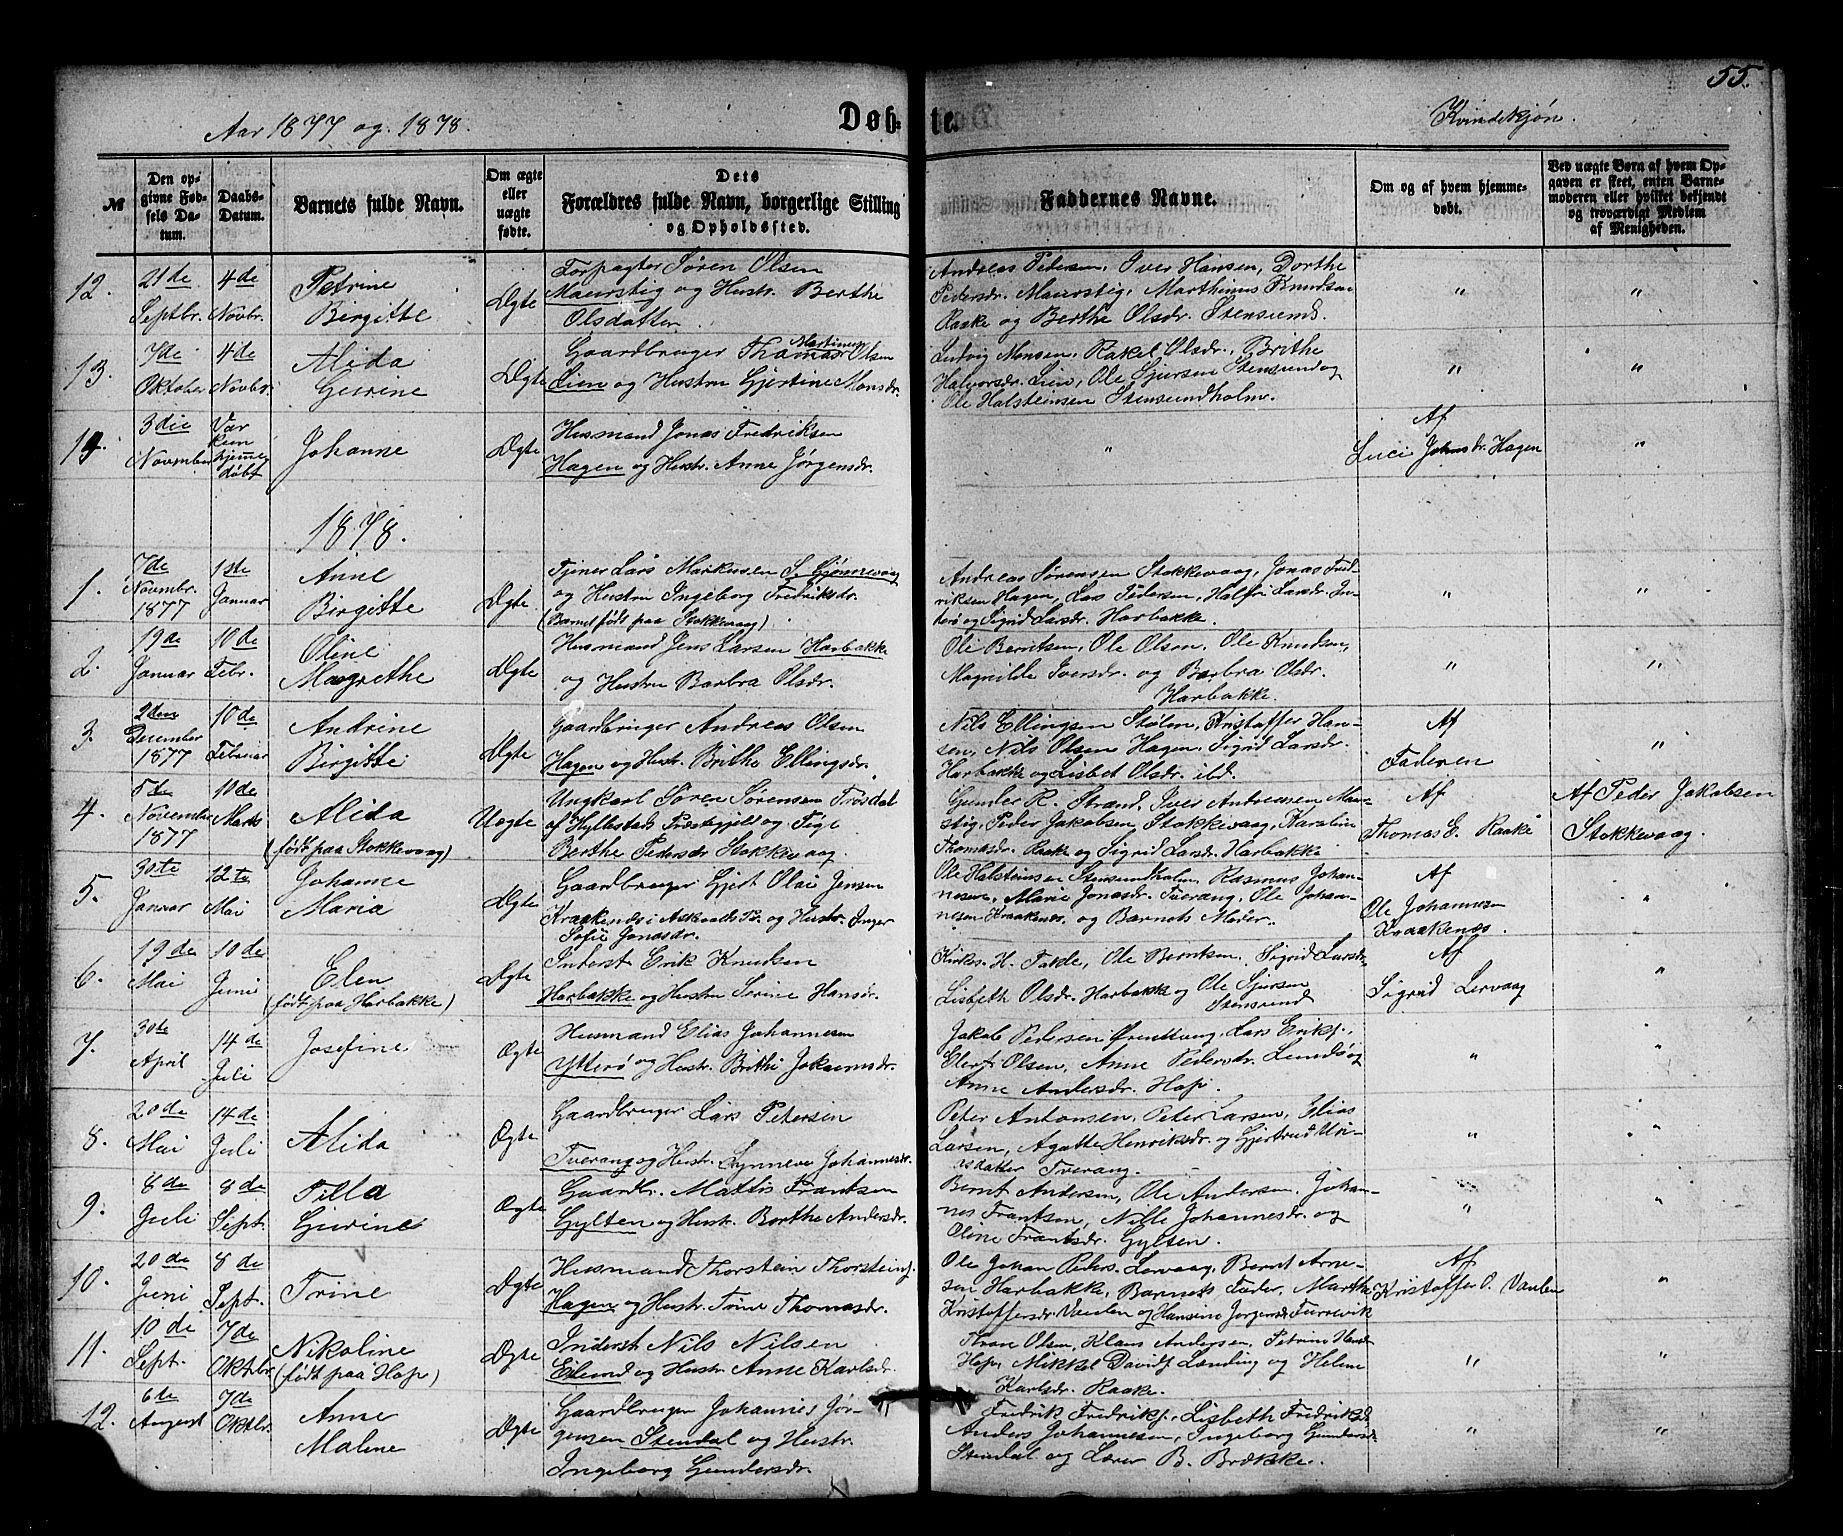 55.
Aar 1877 og 1878.
Døbte.
Kvindekjøn.
№
Den opgivne Fødsels Datum.
Daabs-Datum.
Barnets fulde Navn.
Om ægte eller uægte fødte.
Dets Forældres fulde Navn, borgerlige Stilling og Opholdssted.
Faddernes Navne.
Om og af hvem hjemmedøbt.
Ved uægte Børn af hvem Opgaven er skeet, enten Barnemoderen eller hvilket bekjendt og troværdigt Medlem af Menigheden.
12. 21de Septbr. 4de Novbr. Petrine Birgitte Ægte
Forpagter Søren Olsen
Maurstig og Hustr. Berthe
Olsdatter.
Andreas Pedersen, Iver Hansen, Dorthe
Pedersdr. Maurstig, Marthinus Knudsen
Raake og Berthe Olsdr. Stensund.
" "
13. 7de Oktober 4de Novbr. Alida Gurine Ægte
Martinus
Gaardbruger Thomas Olsen
Lien og Hustru Gjertine Monsdr.
Ludvig Monsen, Rakel Olsdr., Brithe
Halvorsdr. Lien, Ole Sjursen Stensund og
Ole Halsteinsen Stensundholm.
" "
14. 3die Novmber Var kun hjemmedøbt Johanne Ægte
Husmand Jonas Fredriksen
Hagen og Hustr. Anne Jørgensdr.
"
Af
Luci Johnsdr. Hagen
"
1878.
1. 7de Novmbr. 1877 1ste Januar Anne Birgitte Ægte
Tjener Lars Markusen S. Gjønnevaag
og Hustru Ingeborg Fredriksdr.
(Barnet født paa Stokkevaag)
Andreas Sørensen Stokkevaag, Jonas Fred-
riksen Hagen, Lars Pedersen, Larsdr.
og Sigrid Larsdr. Harbakke.
" "
2. 19de Januar 10de Febr. Oline Magrethe Ægte
Husmand Jens Larsen Harbakke
og Hustru Barbra Olsdr.
Ole Berntsen, Ole Olsen, Ole Knudsen,
Magnilde Iversdr. og Barbra Olsdr.
Harbakke.
" "
3. 2den December 1877 10de Februar Andrine Birgitte Ægte
Gaardbruger Andreas Olsen
Hagen og Hustr. Brithe Ellingsdr.
Nils Ellingsen Stølen, Kristoffer Han-
sen, Nils Olsen Hagen, Sigrid Larsdr.
Harbakke og Lisbet Olsdr. ibd.
Af
Faderen
"
4. 5te November 1877 10de Marts Alida (født paa Stokkevaag) Uægte
Ungkarl Søren Sørensen Trosdal
af Hyllestads Præstegjeld og Pige
Berthe Pedersdr Stokkevaag.
Gunder R. Strand, Iver Andreassen Maur-
stig, Peder Jakobsen Stokkevaag, Karoline
Thomasdr. Raake og Sigrid Larsdr. Harbakke
Af
Thomas E. Raake
Af Peder Jakobsen
Stokkevaag
5. 30te Januar 12te Mai Johanne Maria Ægte
Gaardbruger Gjert Olai Jensen
Kraakenæs i Askvolds P. og Hustr. Inger
Sofie Jonasdr.
Ole Halsteinsen Stensundholm, Rasmus Johan-
nesen, Marie Jonasdr. Tverang, Ole Johan-
nesen Kraakenæs, og Barnets Moder.
Af
Ole Johannes-
Kraakenæs.
"
6. 19de Mai 10de Juni Elen (født paa Harbakke) Ægte
Inderst Erik Knudsen
Harbakke og Hustru Serine Hansdr.
Kirkes. H. Takle, Ole Berntsen, Sigrid Larsdr
Lisbeth Olsdr. Harbakke og Ole Sjursen
Stensund
Af
Sigrid Lervaag
"
7. 30te April 14de Juli Josefine Ægte
Husmand Elias Johannesen
Ytterø og Hustr. Brithe Joakumsdr.
Jakob Pedersen, Lars Eriks.,
Olsen, Anne Pedersdr. Lundø og
Anne Andersdr. Hop.
" "
8. 20de Mai 14de Juli Alida Ægte
Gaardbruger Lars Petersen
Tverang og Hustr. Synneve Johannesdr.
Peter Antonsen, Peter Larsen, Elias
Larsen, Agathe Henriksdr. og Gjertrud
Tverang.
" "
9. 8de Juli 8de Sept. Tilla Gurine Ægte
Gaardbr. Mattis Frantsen
Gylten og Hustr. Berthe Andersdr.
Bernt Andersen, Ole Andersen, Johan-
nes Frantsen, Nille Johannesdr. og
Oline Frantsdr. Gylten.
" "
10. 20de Juni 8de Sept. Trine Ægte
Husmand Thorstein Thorsteins.
Hagen og Hustr. Trine Thomasdr.
Ole Johan Peders. Lervaag, Bernt Arne-
sen Harbakke, Barnets Fader, Marthe
Kristoffersdr. Vaulen og Hansine Jørgensdr. Furevik
Af
Kristoffer O. Vaulen
"
11. 10de Sept. 7de Oktbr. Nikoline (født paa Hop) Ægte
Inderst Nils Nilsen
Eilund og Hustr. Anne Karlsdr.
Thrane Olsen, Klaus Andersen, Petrine Hansdr
Hop, Mikkel Davids. Lænding og Helene
Karlsdr. Raake.
" "
12. 6te August 7de Oktbr. Anne Malene Ægte
Gaardbruger Johannes Jør-
gensen Stendal og Hustr.
Ingeborg Gundersdr.
Fredrik Fredriks., Lisbeth Fredriksd.
Anders Johannesen, Ingeborg Gundersd.
Stendal og Lærer B. Brække.
" "